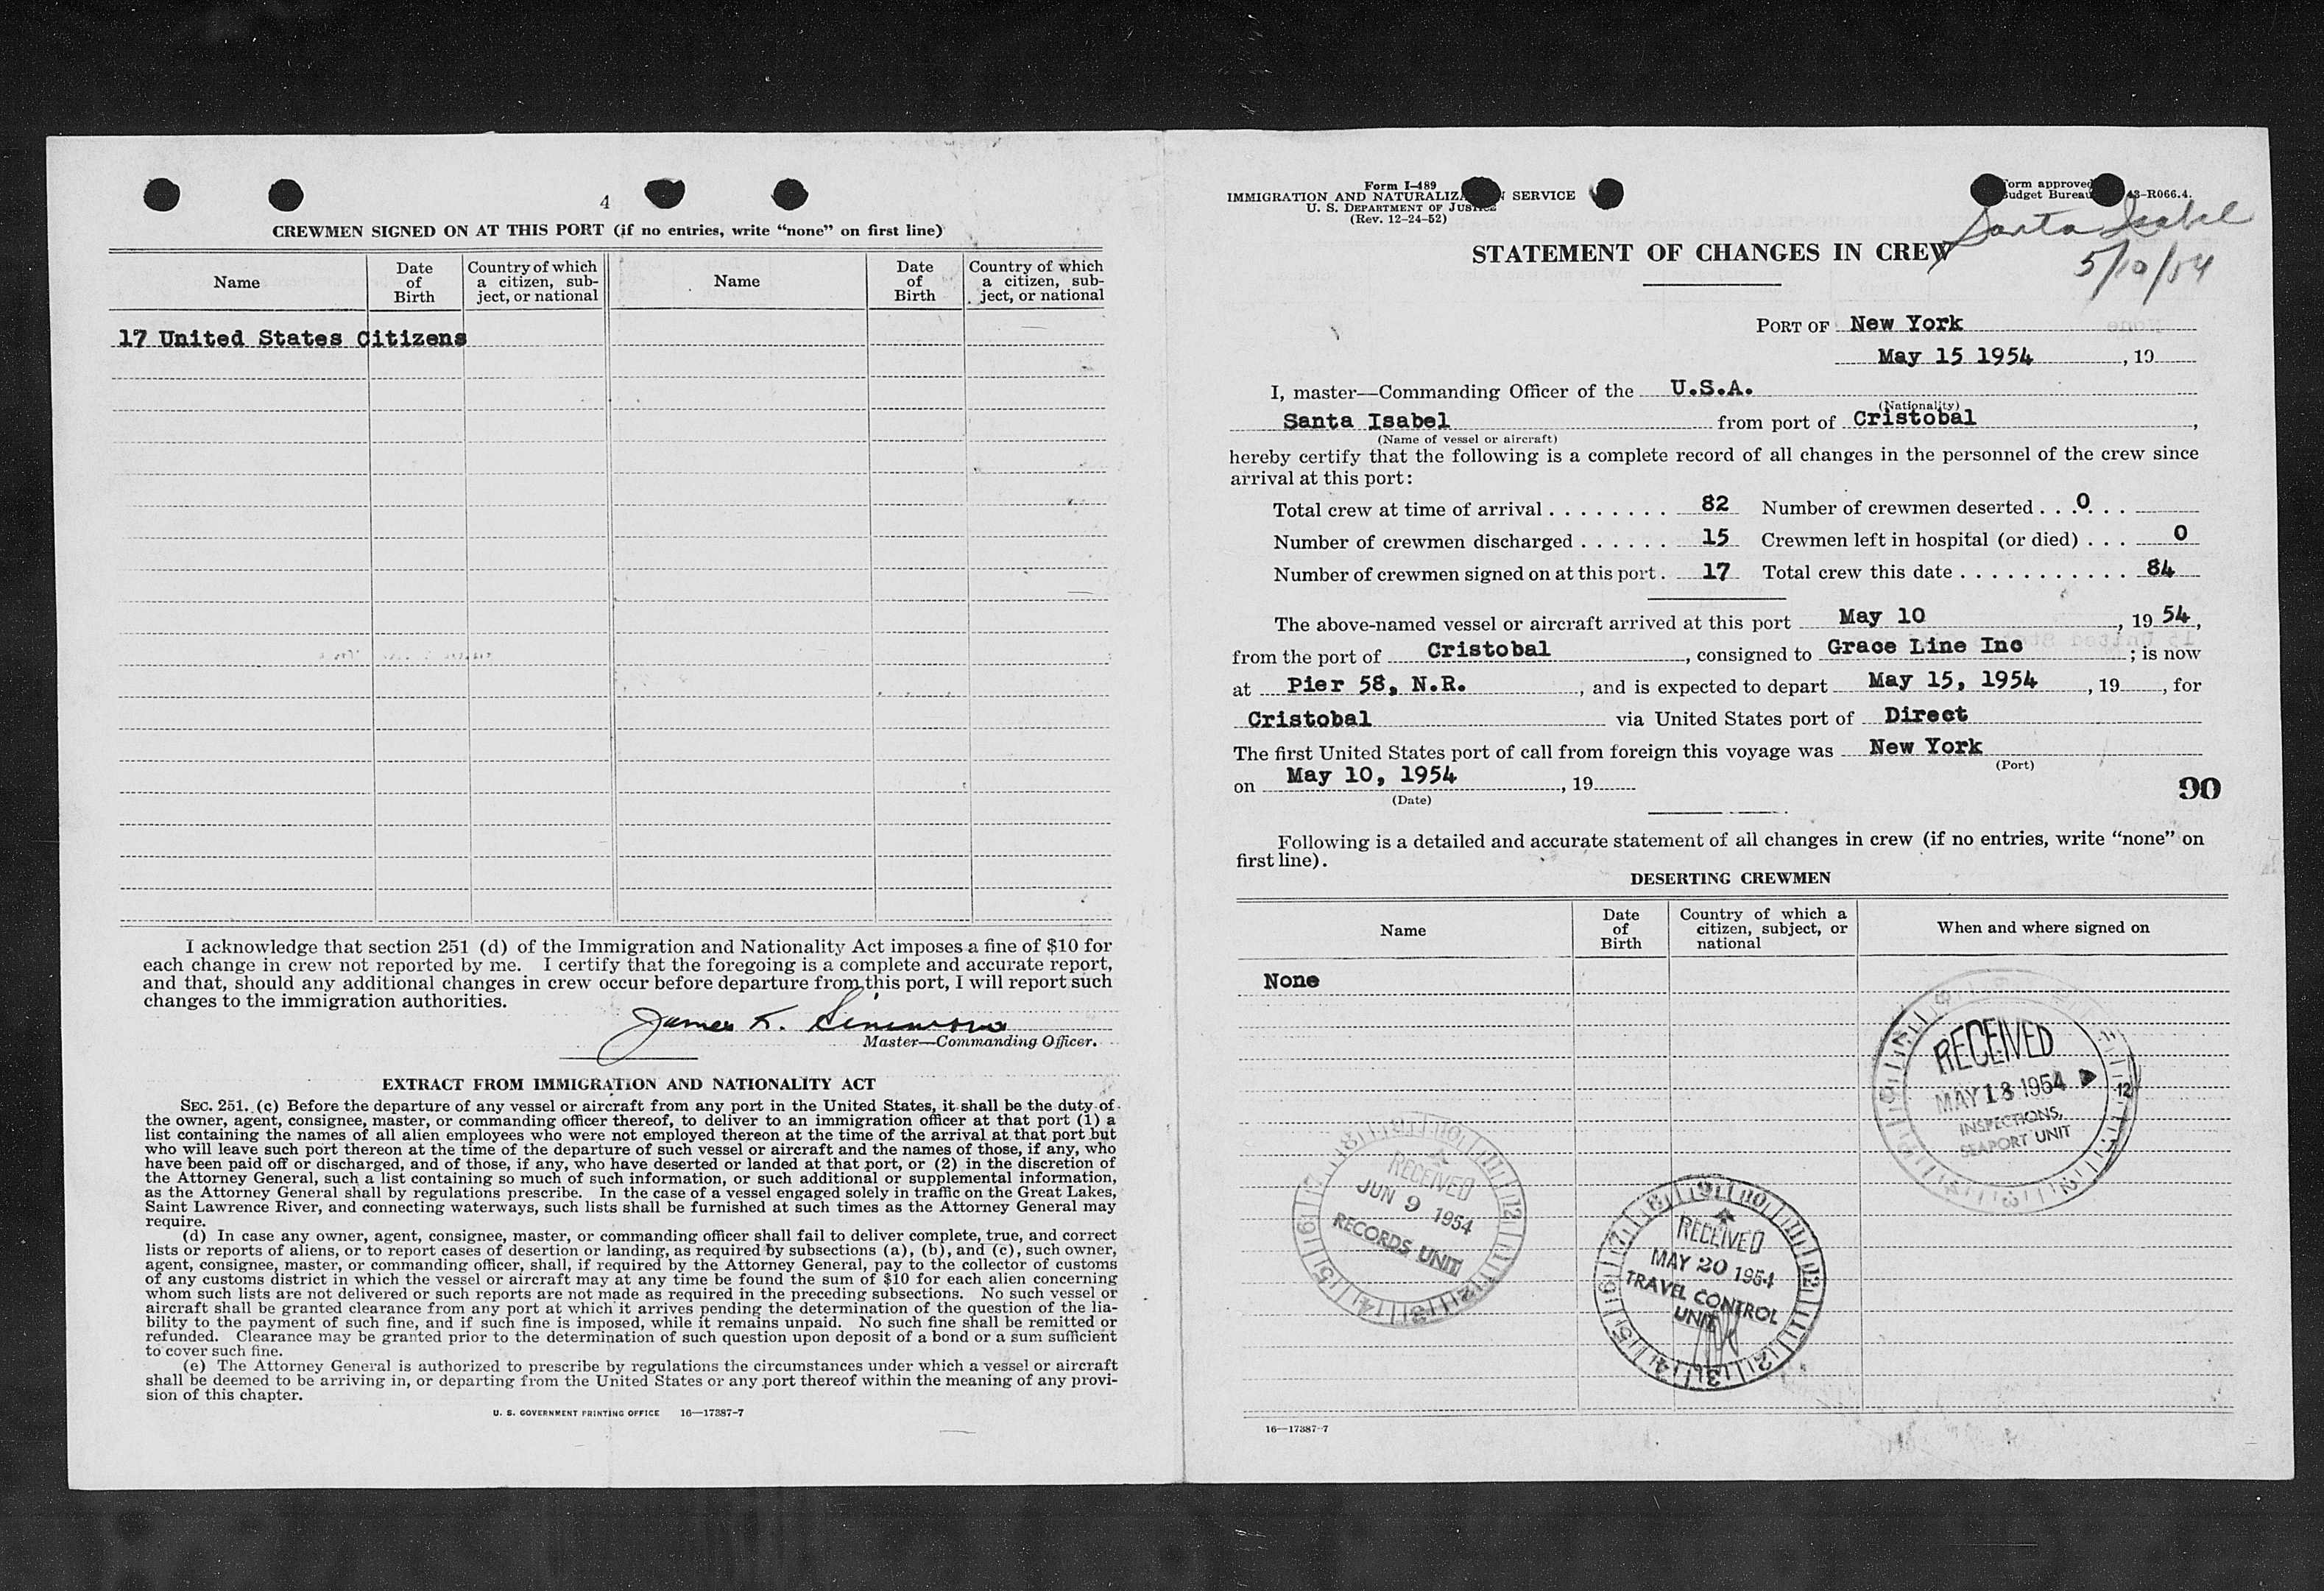 4
CREWMEN SIGNED ON AT THIS PORT (if no entries, write “none” on first line)
Name
Date of Birth
Country of which a citizen, sub-ject, or national
Name
Date of Birth
Country of which a citizen, sub-ject, or national
17 United States Citizens
I acknowledge that section 251 (d) of the Immigration and Nationality Act imposes a fine of $10 for
each change in crew not reported by me. I certify that the foregoing is a complete and accurate report,
and that, should any additional changes in crew occur before departure from this port, I will report such
changes to the immigration authorities.
James K.
Master—Commanding Officer.
EXTRACT FROM IMMIGRATION AND NATIONALITY ACT
SEC. 251. (c) Before the departure of any vessel or aircraft from any port in the United States, it shall be the duty of
the owner, agent, consignee, master, or commanding officer thereof, to deliver to an immigration officer at that port (1) a
list containing the names of all alien employees who were not employed thereon at the time of the arrival at that port but
who will leave such port thereon at the time of the departure of such vessel or aircraft and the names of those, if any, who
have been paid off or discharged, and of those, if any, who have deserted or landed at that port, or (2) in the discretion of
the Attorney General, such a list containing so much of such information, or such additional or supplemental information,
as the Attorney General shall by regulations prescribe. In the case of a vessel engaged solely in traffic on the Great Lakes,
Saint Lawrence River, and connecting waterways, such lists shall be furnished at such times as the Attorney General may
require.
(d) In case any owner, agent, consignee, master, or commanding officer shall fail to deliver complete, true, and correct
lists or reports of aliens, or to report cases of desertion or landing, as required by subsections (a), (b), and (c), such owner,
agent, consignee, master, or commanding officer, shall, if required by the Attorney General, pay to the collector of customs
of any customs district in which the vessel or aircraft may at any time be found the sum of $10 for each alien concerning
whom such lists are not delivered or such reports are not made as required in the preceding subsections. No such vessel or
aircraft shall be granted clearance from any port at which it arrives pending the determination of the question of the lia-
bility to the payment of such fine, and if such fine is imposed, while it remains unpaid. No such fine shall be remitted or
refunded. Clearance may be granted prior to the determination of such question upon deposit of a bond or a sum sufficient
to cover such fine.
(e) The Attorney General is authorized to prescribe by regulations the circumstances under which a vessel or aircraft
shall be deemed to be arriving in, or departing from the United States or any port thereof within the meaning of any provi-
sion of this chapter.
U. S. GOVERNMENT PRINTING OFFICE 16—17387-7
Form I-489
IMMIGRATION AND NATURALIZ N SERVICE
U. S. DEPARTMENT OF JUSTICE
(Rev. 12-24-52)
orm approved
Budget Bureau 43-R066.4.
Santa Isabel
5/10/54
STATEMENT OF CHANGES IN CREW
PORT OF New York
May 15 1954, 19
I, master—Commanding Officer of the U.S.A.
(Nationality)
Santa Isabel from port of Cristobal,
(Name of vessel or aircraft)
hereby certify that the following is a complete record of all changes in the personnel of the crew since
arrival at this port:
Total crew at time of arrival . . . . . . . . 82 Number of crewmen deserted . . . 0 . .
Number of crewmen discharged . . . . . . 15 Crewmen left in hospital (or died) . . . 0
Number of crewmen signed on at this port . 17 Total crew this date . . . . . . . . . . . 84
The above-named vessel or aircraft arrived at this port May 10, 19 54,
from the port of Cristobal, consigned to Grace Line Inc; is now
at Pier 58, N.R., and is expected to depart May 15, 1954, 19, for
Cristobal via United States port of Direct
The first United States port of call from foreign this voyage was New York
(Port)
on May 10, 1954, 19
(Date)
90
Following is a detailed and accurate statement of all changes in crew (if no entries, write “none” on
first line).
DESERTING CREWMEN
Name
Date of Birth
Country of which a citizen, subject, or national
When and where signed on
None
RECEIVED
MAY 18 1954
INSPECTIONS,
SEAPORT UNIT
RECEIVED
JUN 9 1954
RECORDS UNIT
RECEIVED
MAY 20 1954
TRAVEL CONTROL
UNIT
16—17387-7